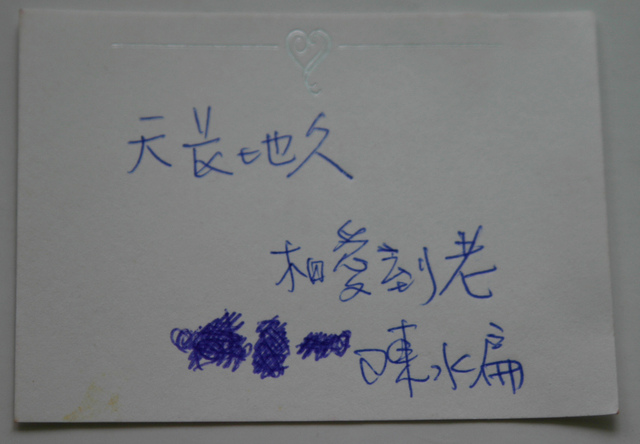 天長地久
相愛到老
陳水扁